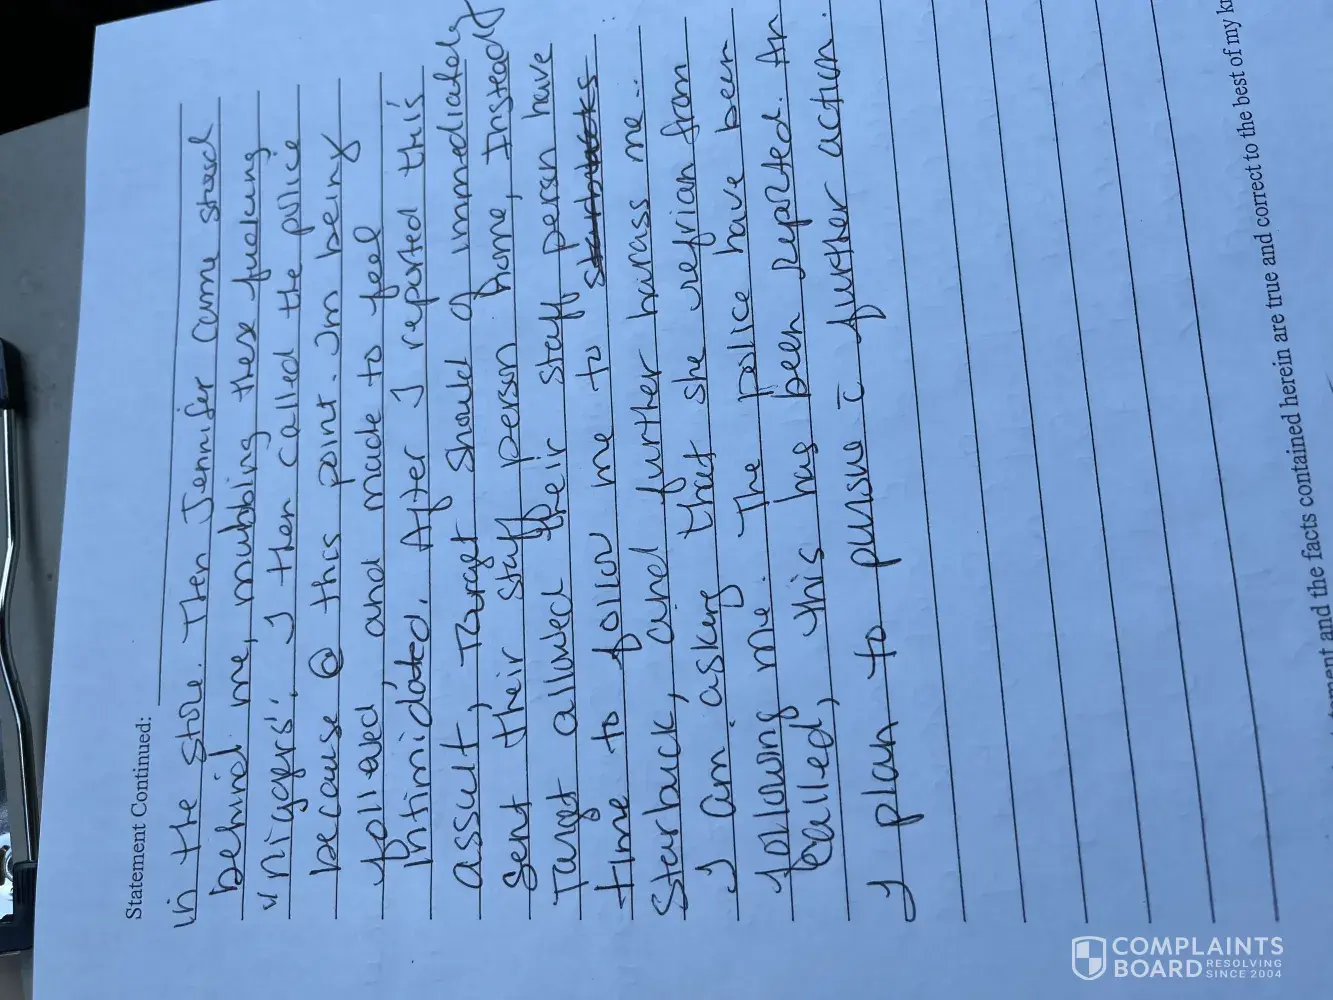 Statement Continued:
in the store. Then Jennifer came stood
behind me, mubbling these fucking
"niggers". I then called the police
because @ this point. Im being
followed, and made to feel
intimidated. After I reported this
assult, Target should of immediately
sent their staff person home, Instead
Target allowed their staff person have
time to follow me to starbucks
Starbuck, and further harass me.
I am asking that she refrian from
following me. The police have been
called, this has been reported. An
I plan to pursue c̄ further action.
tement and the facts contained herein are true and correct to the best of my kn
COMPLAINTS
BOARD RESOLVING
SINCE 2004